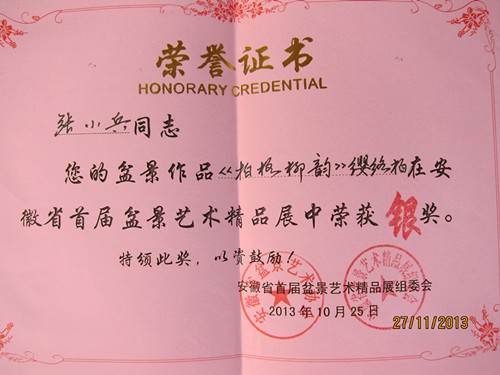 荣誉证书
HONORARY CREDENTIAL
张小兵同志
您的盆景作品《柏板柳韵》缨络柏在安
徽省首届盆景艺术精品展中荣获银奖。
特颁此奖,以资鼓励!
安徽省首届盆景艺术精品展组委会
2013年10月25日
27/11/2013